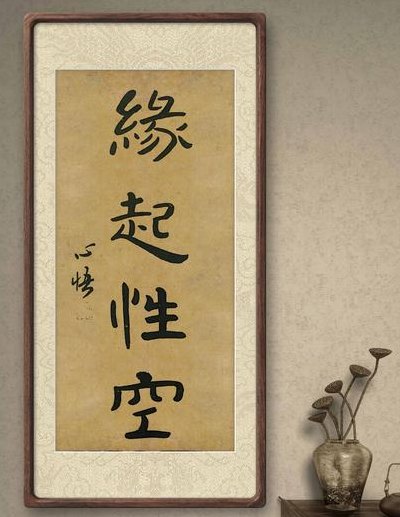 緣起性空
心悟